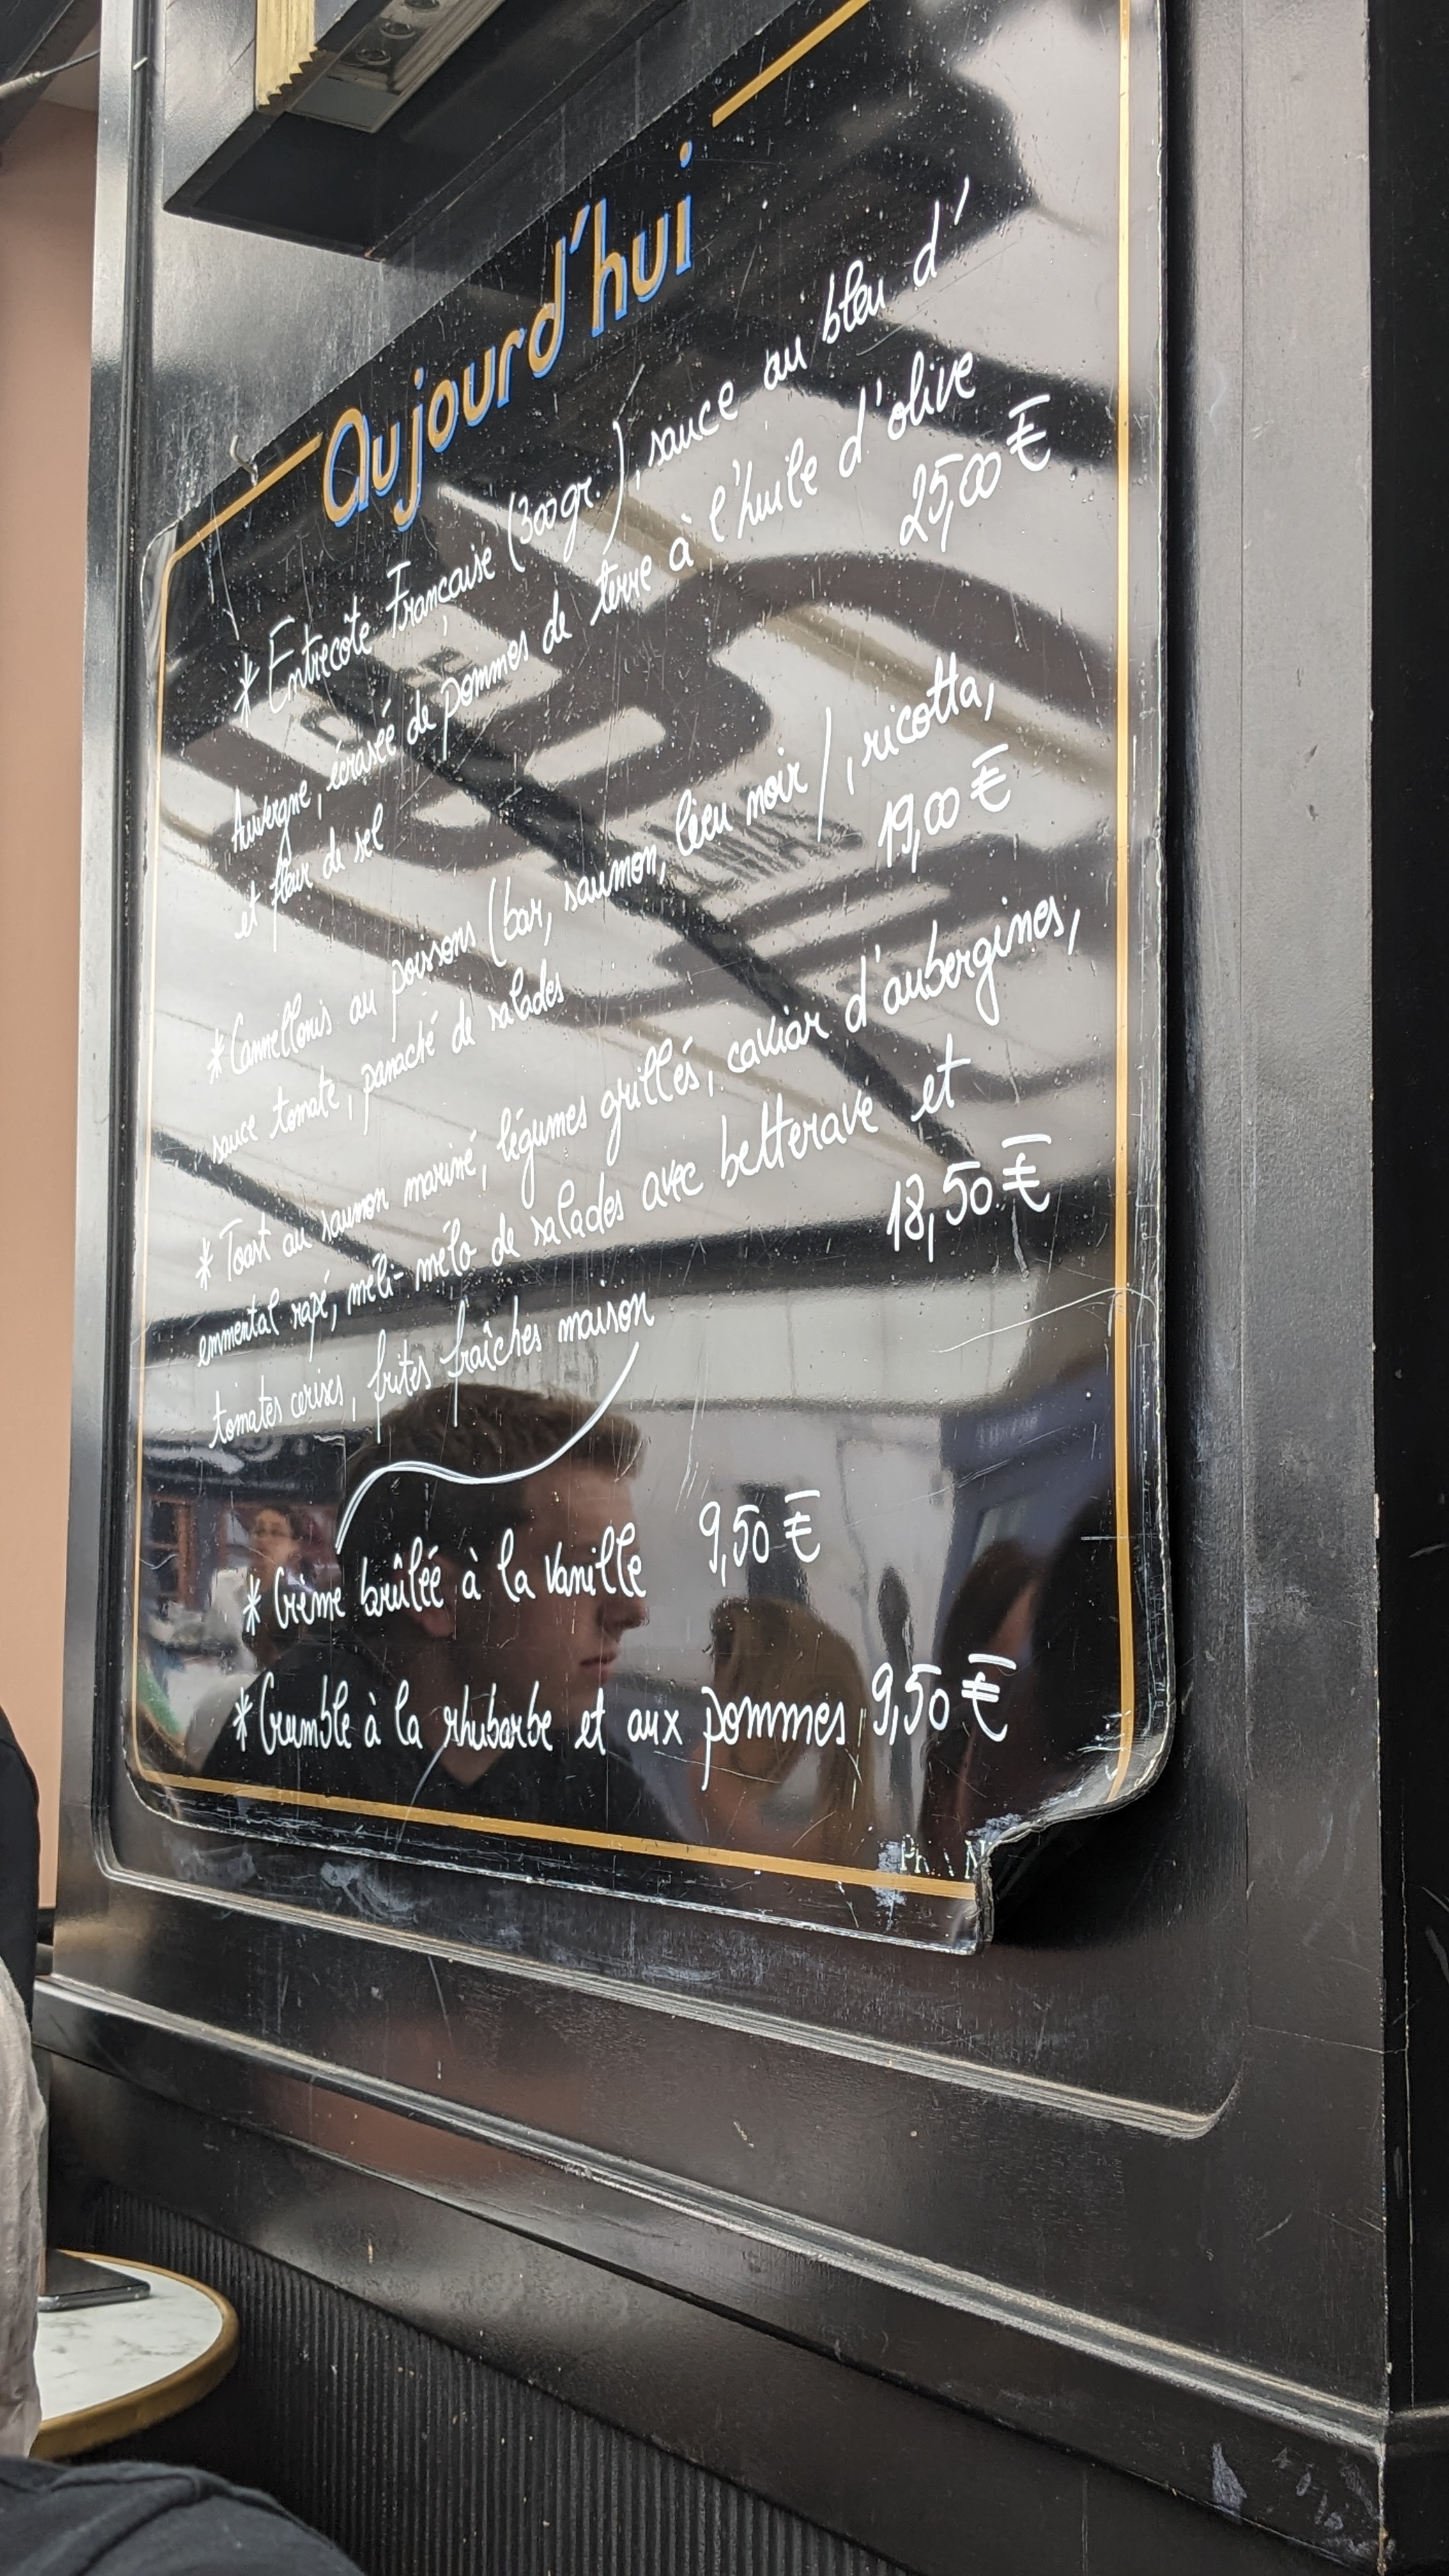 Aujourd'hui
* Entrecôte Française (300gr.), sauce au bleu d'
Auvergne, écrasée de pommes de terre à l'huile d'olive
et fleur de sel 25,00 €
* Cannellonis au poissons (bar, saumon, lieu noir), ricotta,
sauce tomate, panaché de salades 19,00 €
* Toast au saumon mariné, légumes grillés, caviar d'aubergines,
emmental rapé, méli-mélo de salades avec betterave et
tomates cerises, frites fraîches maison 18,50 €
* Crème brûlée à la vanille 9,50 €
* Crumble à la rhubarbe et aux pommes 9,50 €